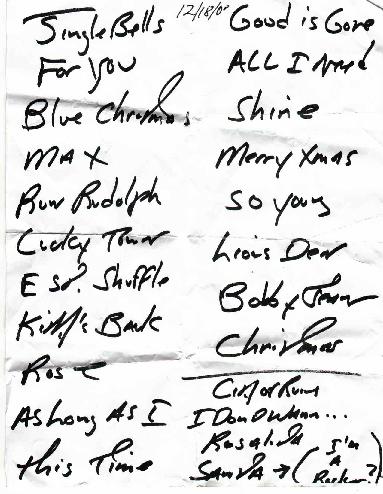 12/18/0
Jingle Bells
For You
Blue Christmas
MAX
Run Rudolph
Lucky Town
E St. Shuffle
Kitty's Back
Rosie
As Long As I
This Time
Good is Gone
ALL I Need
Shine
Merry Xmas
So Young
Lions Den
Bobby Jean
Christmas
City of Ruins
I Don't Wanna...
Rosalita
SANTA → (I'm A Rocker?)